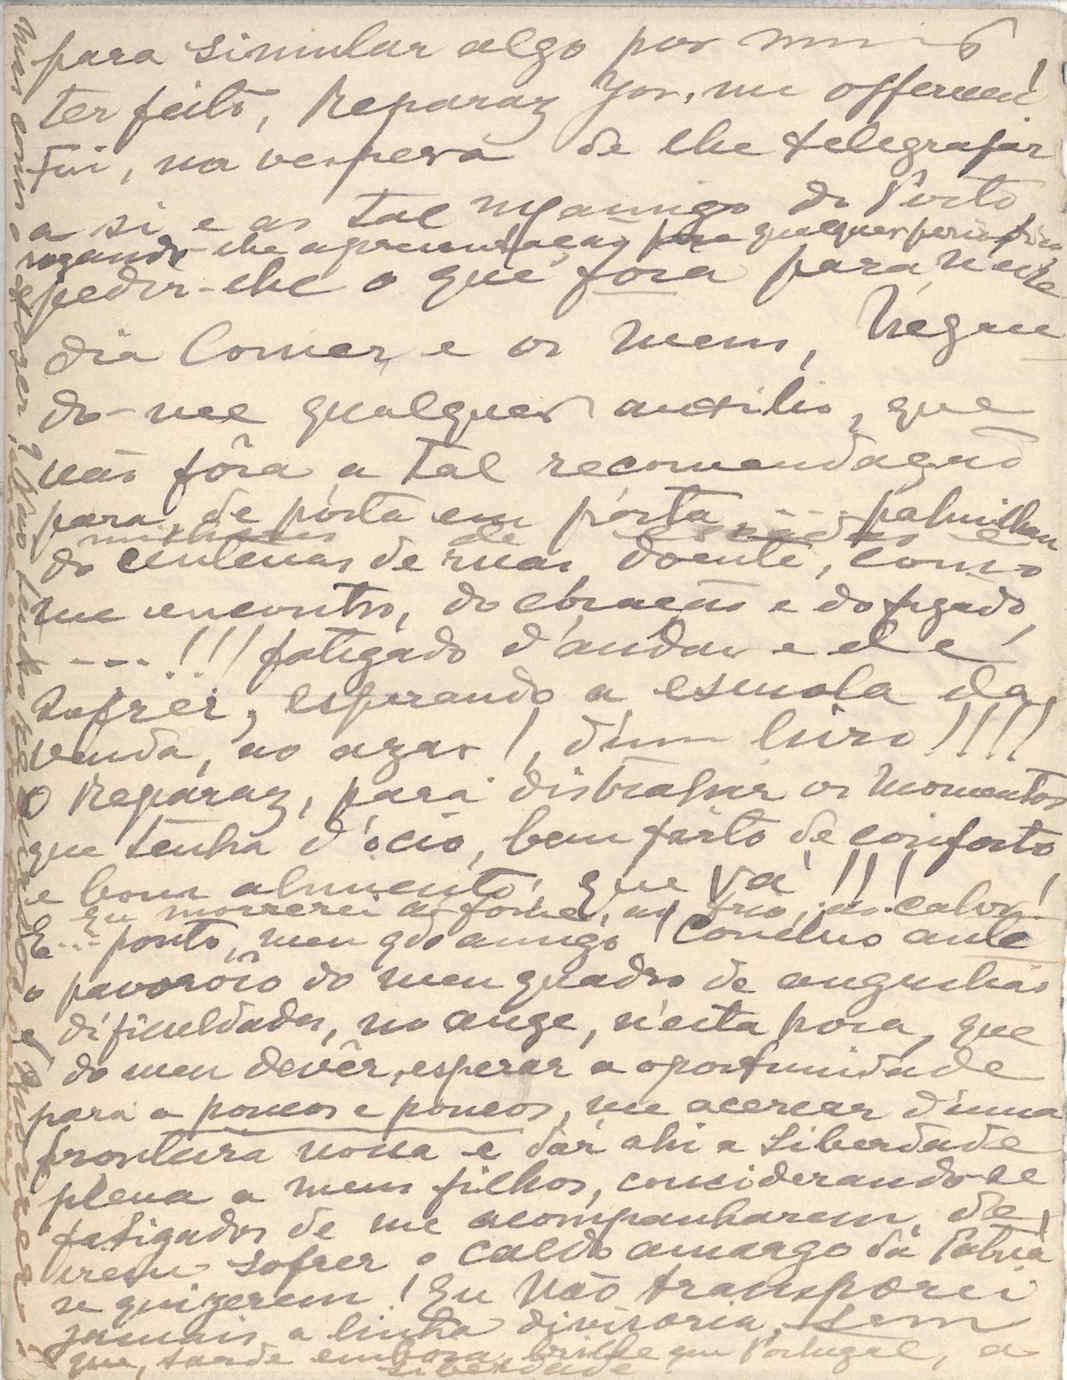 para simular algo por mim
ter feito, Reparaz Jor. me offereceu!
Fui, na vespera de lhe telegrafar
a si e ao tal amigo do Porto
rogando-lhe apresentação para qualquer
e pedir-lhe o que fora para n'este
dia comer, e os meus, négan
do-me qualquer auxilio, que
não fôra a tal recomendação
para, de pórta em pórta, palmilhan
milhares de
do centenas de ruas doente, como
me encontro, do coração e do figado
----!!! fatigado d'andar e de
sofrer, esperando a esmola da
venda, ao azar!, d'um livro!!!!
O Reparaz, para distrahir os momentos
que tenha d'ócio, bem farto de conforto,
e bom alimento, que vá!!!
Eu morrerei á fome, ao frio, ao calor!
E... ponto, meu qdo amigo! Concluo ante
o pavorôso do meu quadro de angustias
e dificuldades, no auge, n'esta hora, que
do meu devêr, esperar a oportunidade
para a poucos e poucos, me acercar d'uma
fronteira nossa e dár ahi a Liberdade
plena a meus filhos, considerando-se
fatigados de me acompanharem, de
irem sofrer o caldo amargo da Patria
se quizerem! Eu Não transporei
jamais a linha divisoria, sem
que, tarde embora, brilhe em Portugal, a
Liberdade